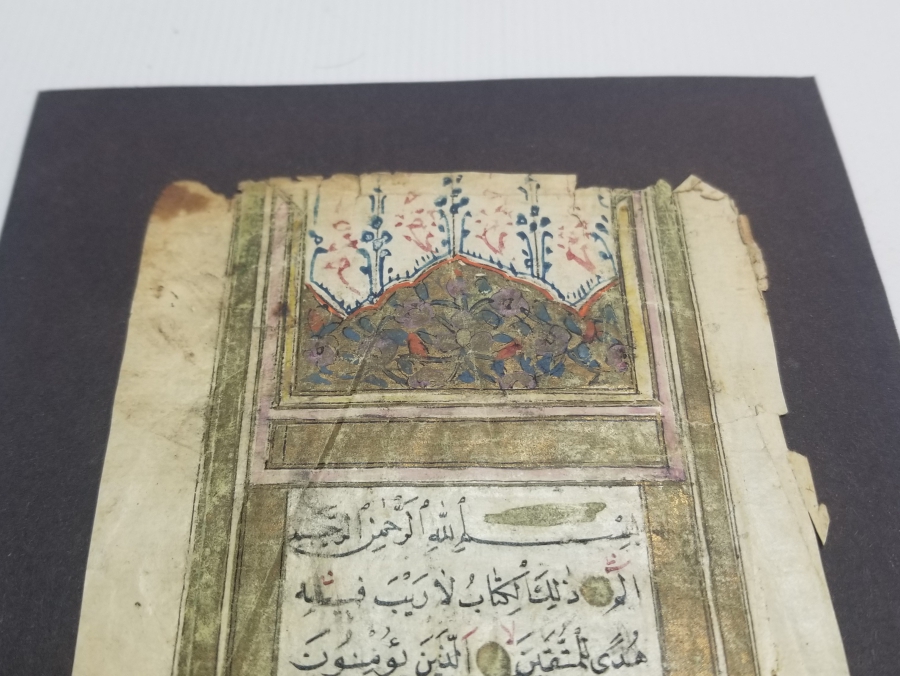 بِسْمِ ٱللّٰهِ ٱلرَّحْمٰنِ ٱلرَّحِيمِ
الٓمٓ ذٰلِكَ ٱلْكِتَابُ لَا رَيْبَ فِيهِ
هُدًى لِلْمُتَّقِينَ ٱلَّذِينَ يُؤْمِنُونَ